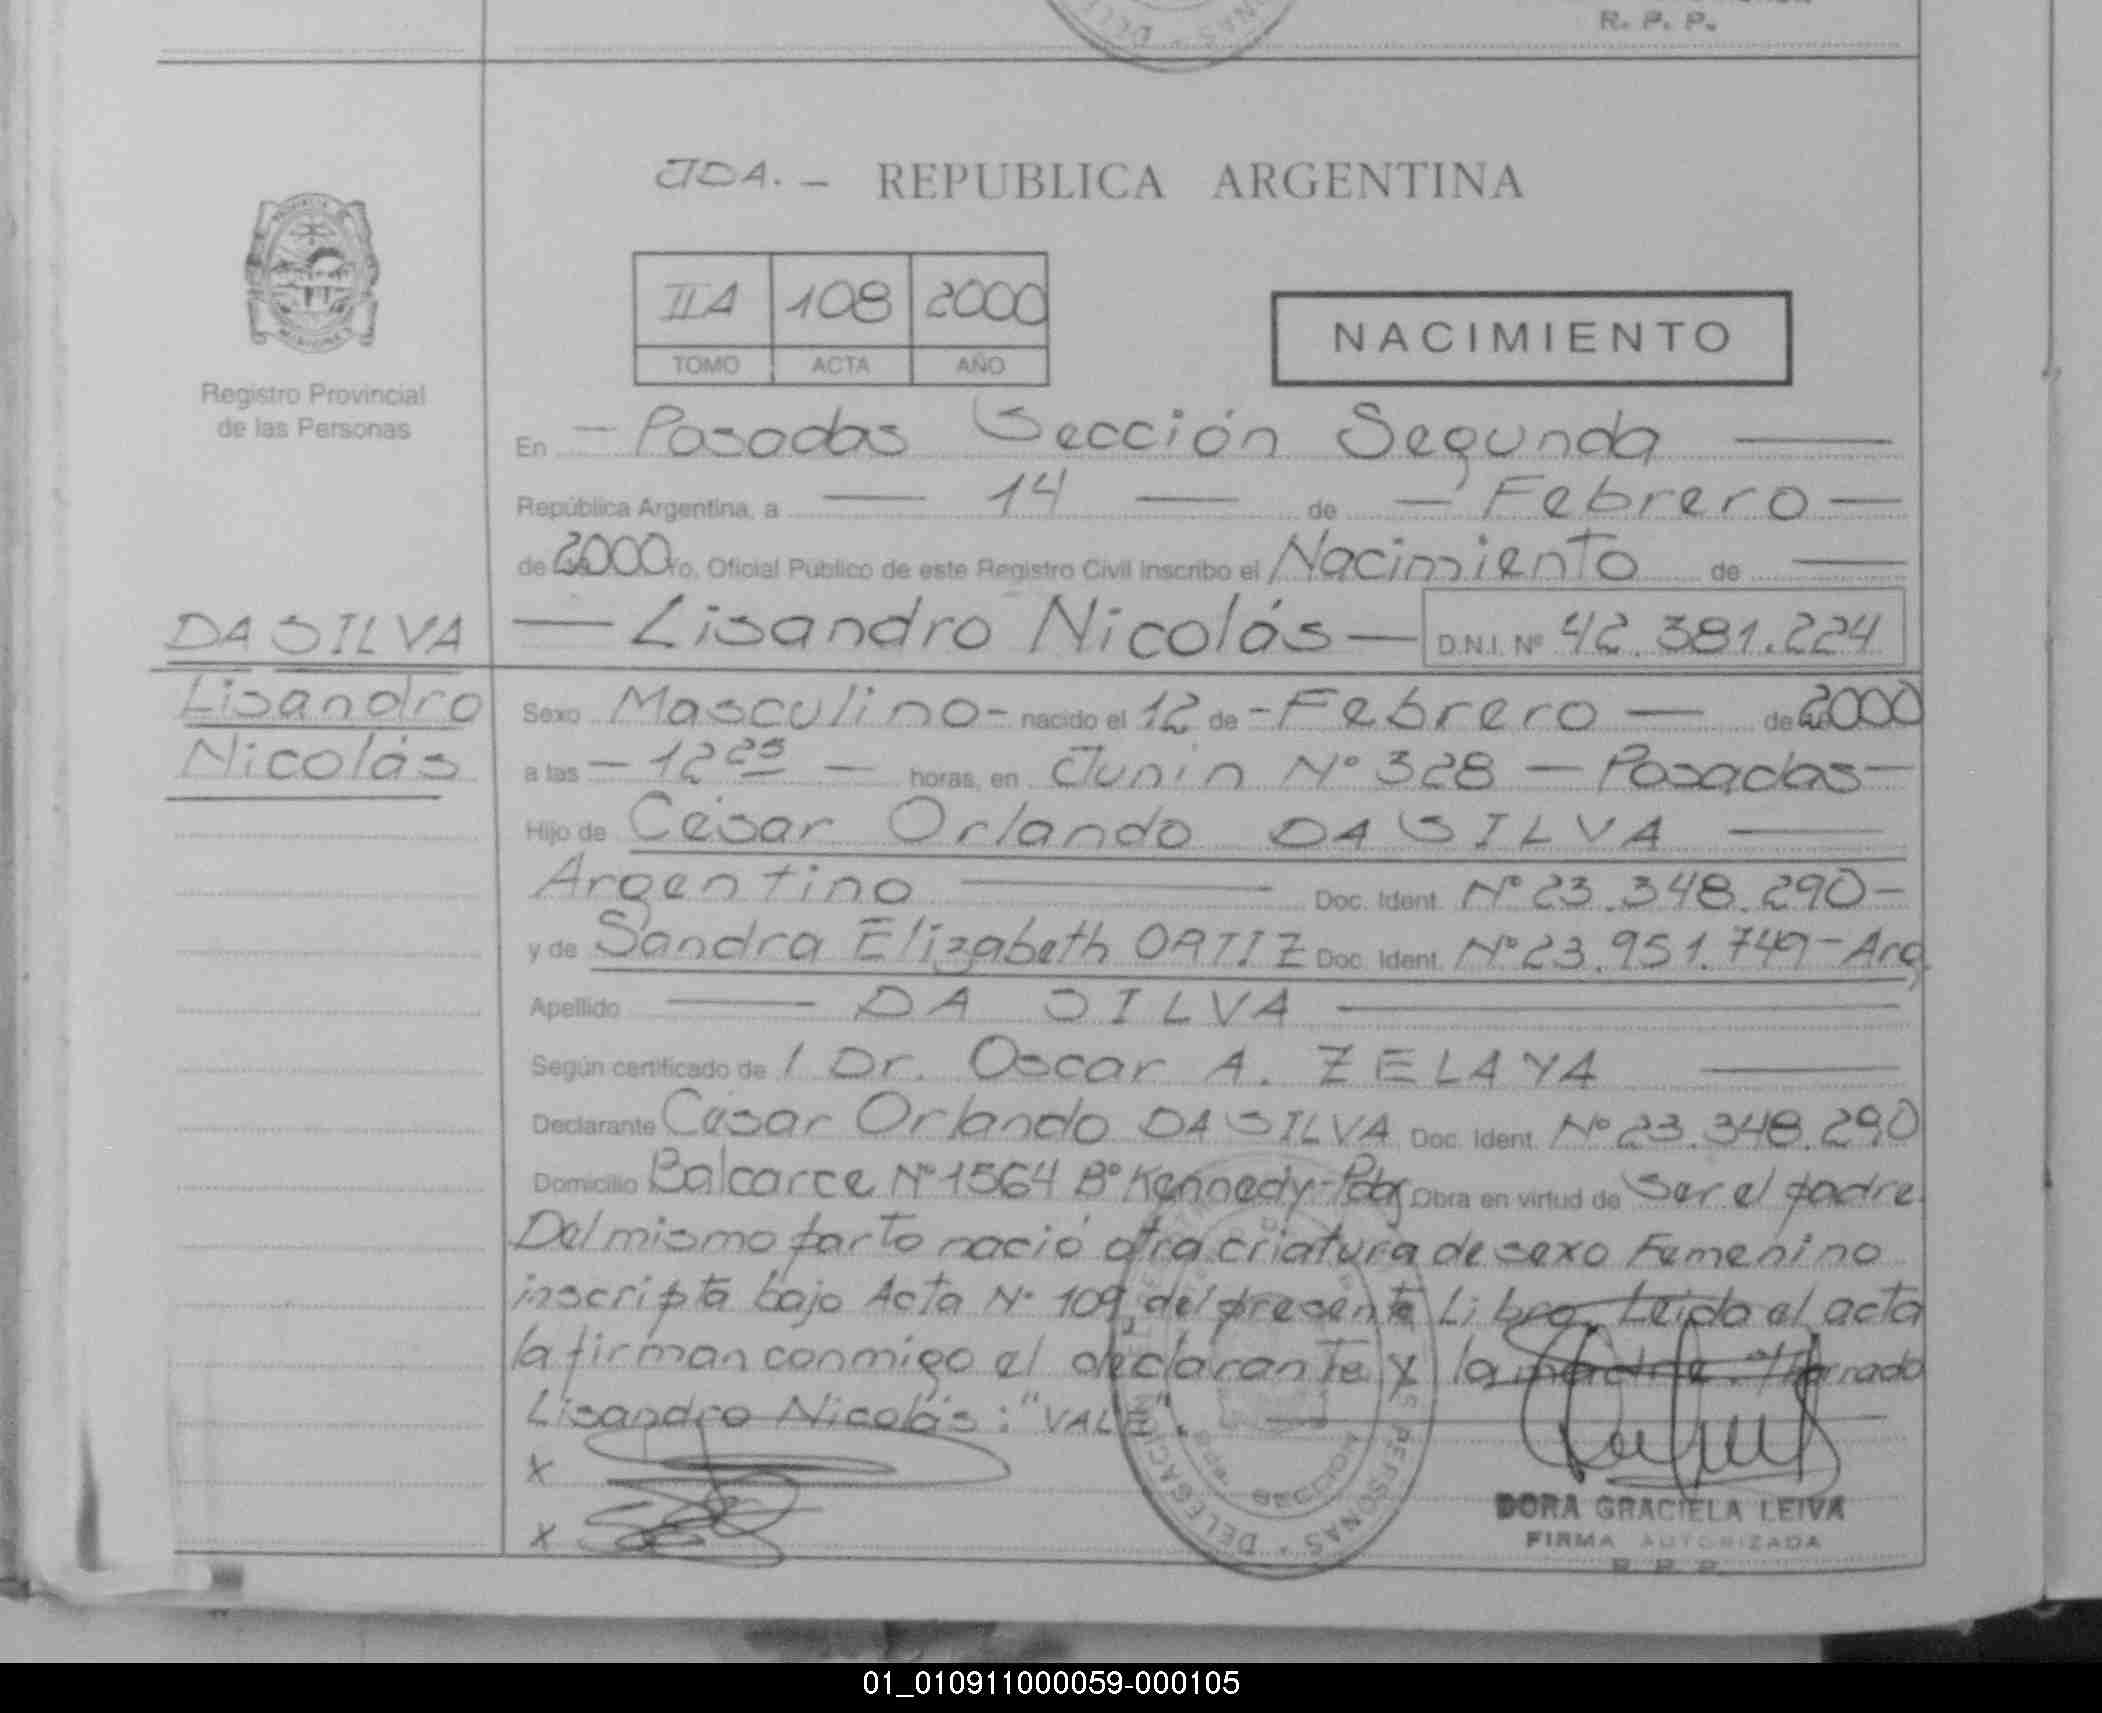 R. P. P.
JDA. - REPUBLICA ARGENTINA
IIA 108 2000
TOMO ACTA AÑO
NACIMIENTO
Registro Provincial
de las Personas
En - Posadas Sección Segunda
República Argentina, a 14 de - Febrero -
de 2000 yo, Oficial Público de este Registro Civil inscribo el Nacimiento de
DA SILVA
Lisandro
Nicolás
Lisandro Nicolás - D.N.I. Nº 42.381.224
Sexo Masculino - nacido el 12 de - Febrero - de 2000
a las - 12 25 - horas, en Junín Nº 328 - Posadas -
Hijo de César Orlando DA SILVA
Argentino Doc. Ident. Nº 23.348.290 -
y de Sandra Elizabeth ORTIZ Doc. Ident. Nº 23.951.749 - Arg
Apellido DA SILVA
Según certificado de / Dr. Oscar A. ZELAYA
Declarante César Orlando DA SILVA Doc. Ident. Nº 23.348.290
Domicilio Balcarce Nº 1564 Bº Kennedy - Pdas Obra en virtud de Ser el padre
Del mismo parto nació otra criatura de sexo Femenino
inscripta bajo Acta Nº 109, del presente Libro, Leida el acta
la firman conmigo el declarante y la madre.
Lisandro Nicolás: "VALE".
x
x
DELEGACION SECCION PERSONAS
DORA GRACIELA LEIVA
FIRMA AUTORIZADA
R. P. P.
01_010911000059-000105